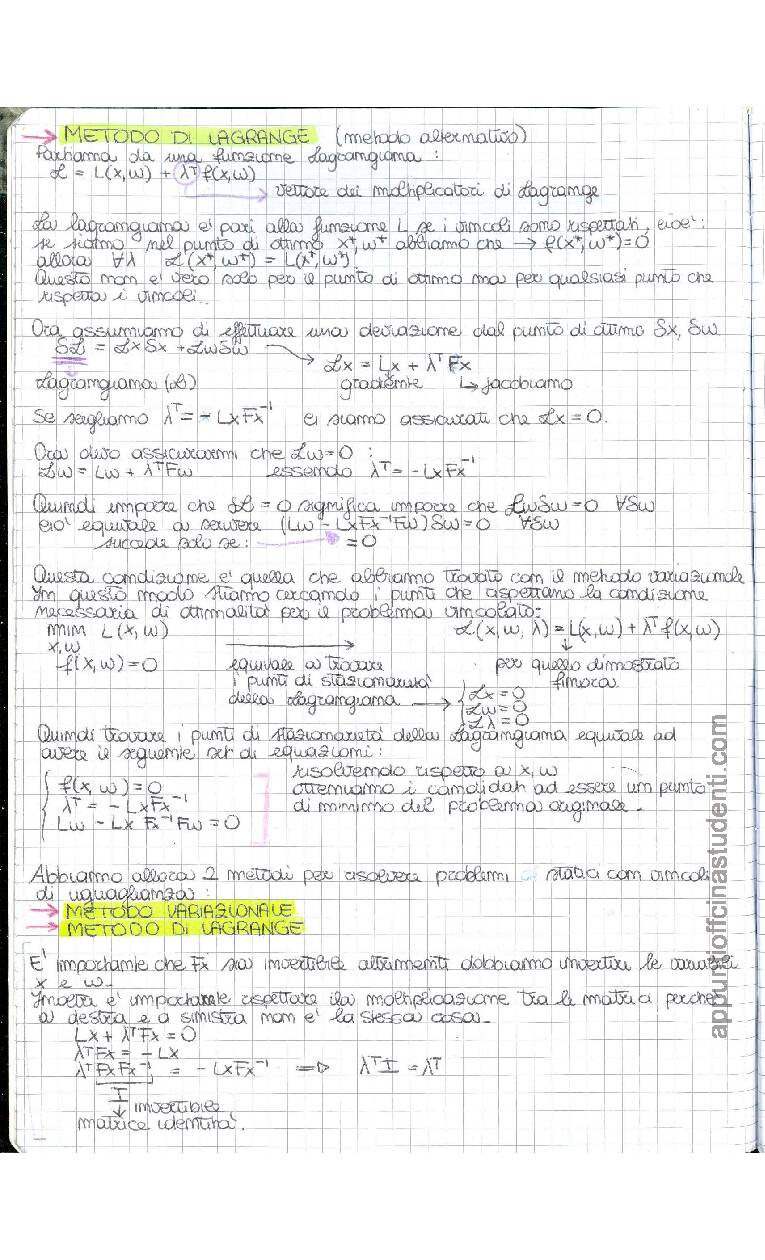 → METODO DI LAGRANGE (metodo alternativo)
Partiamo da una funzione Lagrangiana :
ℒ = L(x,w) + λᵀf(x,w)
→ vettore dei moltiplicatori di Lagrange
La lagrangiana e' pari alla funzione L se i vincoli sono rispettati, cioe':
se siamo nel punto di ottimo x*, w* abbiamo che → f(x*,w*)=0
allora ∀λ ℒ(x*,w*) = L(x*,w*)
Questo non e' vero solo per il punto di ottimo ma per qualsiasi punto che
rispetta i vincoli.
Ora assumiamo di effettuare una deviazione dal punto di ottimo δx, δw
δℒ = ℒxδx + ℒwδw
→ ℒx = Lx + λᵀ Fx
Lagrangiana (ℒ) gradiente ↳ jacobiano
Se scegliamo λᵀ = - Lx Fx⁻¹ ci siamo assicurati che ℒx = 0.
Ora devo assicurarmi che ℒw=0 :
ℒw = Lw + λᵀFw essendo λᵀ = - LxFx⁻¹
Quindi imporre che δℒ = 0 significa imporre che ℒwδw=0 ∀δw
cio' equivale a scrivere (Lw - LxFx⁻¹Fw)δw=0 ∀δw
succede solo se: → =0
Questa condizione e' quella che abbiamo trovato con il metodo variazionale
In questo modo stiamo cercando i punti che rispettano la condizione
necessaria di ottimalita' per il problema vincolato:
min L(x,w) ℒ(x,w,λ) = L(x,w) + λᵀf(x,w)
x,w
f(x,w)=0 equivale a trovare per quello dimostrato
i punti di stazionarieta' finora.
della Lagrangiana → { ℒx = 0
ℒw = 0
ℒλ = 0
Quindi trovare i punti di stazionarieta' della Lagrangiana equivale ad
avere il seguente set di equazioni :
{ f(x,w) = 0
λᵀ = - LxFx⁻¹
Lw - Lx Fx⁻¹Fw = 0
risolvendo rispetto a x,w
otteniamo i candidati ad essere un punto
di minimo del problema originale.
Abbiamo allora 2 metodi per risolvere problemi statici con vincoli
di uguaglianza :
→ METODO VARIAZIONALE
→ METODO DI LAGRANGE
E' importante che Fx sia invertibile altrimenti dobbiamo invertire le variabili
x e w.
Inoltre e' importante rispettare la moltiplicazione tra le matrici perche'
a destra e a sinistra non e' la stessa cosa.
Lx + λᵀFx = 0
λᵀFx = - Lx
λᵀFxFx⁻¹ = - LxFx⁻¹ ⇒ λᵀI = λᵀ
I
↓ invertibile
matrice identita'.
appuntiofficinastudenti.com